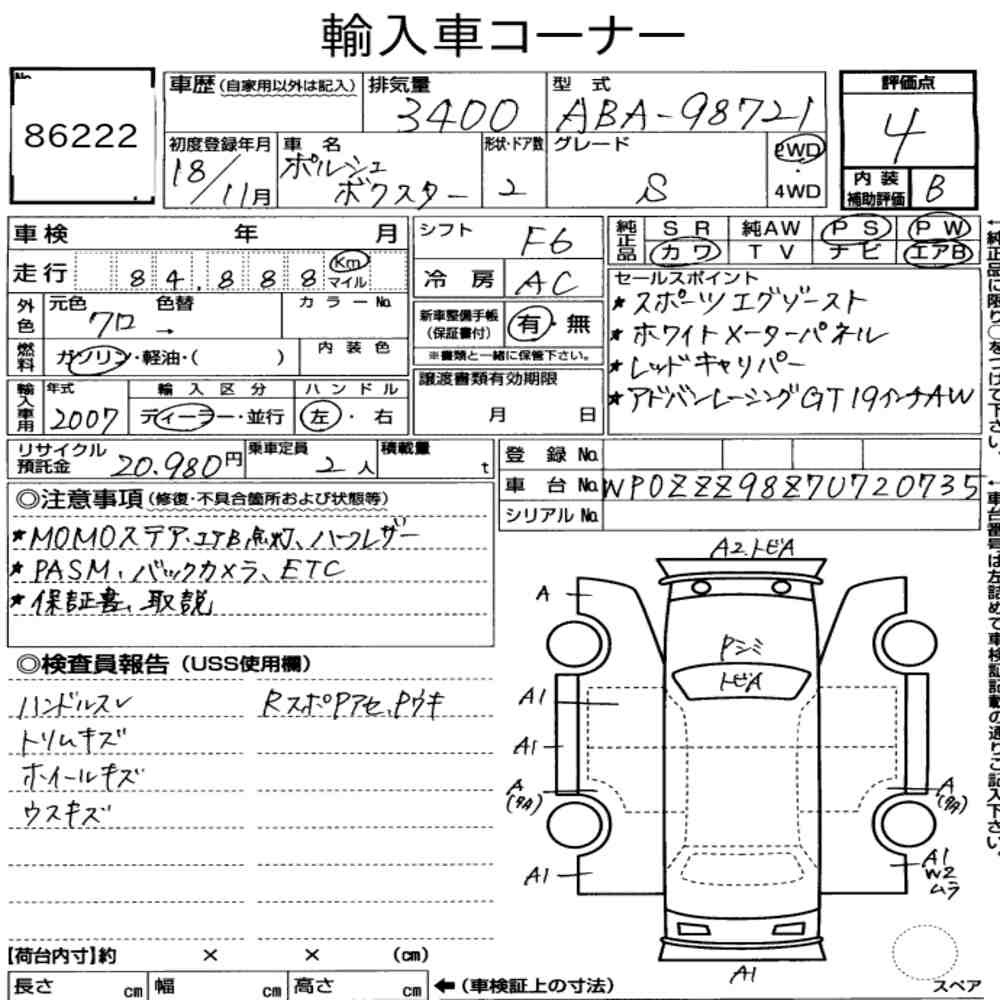 輸入車コーナー
No.
86222
車歴(自家用以外は記入) 排気量 3400 型式 ABA-98721
初度登録年月 18/11月 車名 ポルシェ ボクスター 形状・ドア数 2 グレード S 2WD・4WD
評価点 4
内装補助評価 B
車検 年 月
走行 84,888 Km マイル
外色 元色 クロ → 色替 カラーNo.
燃料 ガソリン・軽油・( ) 内装色
輸入車用 年式 2007 輸入区分 ディーラー・並行 ハンドル 左・右
シフト F6
冷房 AC
新車整備手帳(保証書付) 有・無
※書類と一緒に保管下さい。
譲渡書類有効期限
月 日
純正品 SR 純AW PS PW
カワ TV ナビ エアB
セールスポイント
★スポーツエグゾースト
★ホワイトメーターパネル
★レッドキャリパー
★アドバンレーシングGT19インチAW
←純正品に限り○をつけて下さい。
リサイクル預託金 20.980円 乗車定員 2人 積載量 t
登録No.
車台No. WP0ZZZ98Z7U720735
シリアルNo.
←車台番号は左詰めで車検証記載の通りご記入下さい。
◎注意事項(修復・不具合箇所および状態等)
★MOMOステア.エアB点灯、ハーフレザー
★PASM、バックカメラ、ETC
★保証書、取説
◎検査員報告(USS使用欄)
ハンドルスレ
トリムキズ
ホイールキズ
ウスキズ
RスポPアセ、Pウキ
A2.トビA
A
Pシミ
トビA
A1
A1
A
A1
A
A1
W2
ムラ
A1
スペア
【荷台内寸】約 × × (cm)
長さ cm 幅 cm 高さ cm ←(車検証上の寸法)